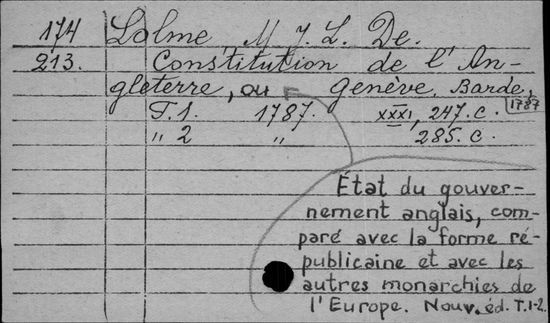 174 Lolme M J. L. De.
213. Constitution de l'An-
gleterre, ou Genève. Barde,
1787
T. 1. 1787. XXXI, 247. c.
„ 2 „ 285. c.
État du gouver-
nement anglais, com-
paré avec la forme ré-
publicaine et avec les
autres monarchies de
l'Europe. Nouv. éd. T. 1-2.